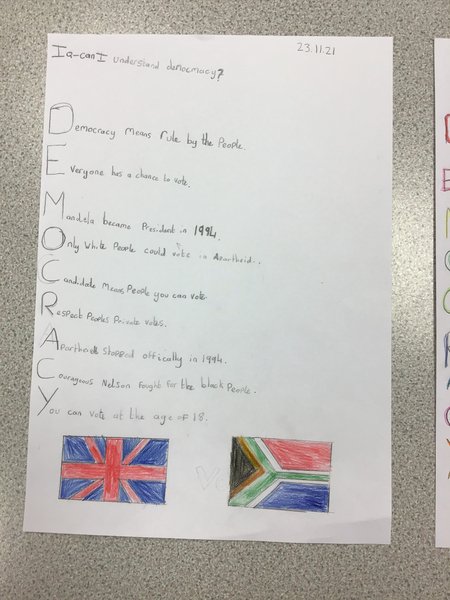 23.11.21
Iq-can I understand democmacy?
Democracy Means rule by the People.
Everyone has a chance to vote.
Mandela became President in 1994.
Only White People could vote in Apartheid.
Candidate Means People you can vote.
Respect Peoples Private votes.
Apartheid Stopped offically in 1994.
Courageous Nelson fought for the black People.
You can vote at the age of 18.
D
E